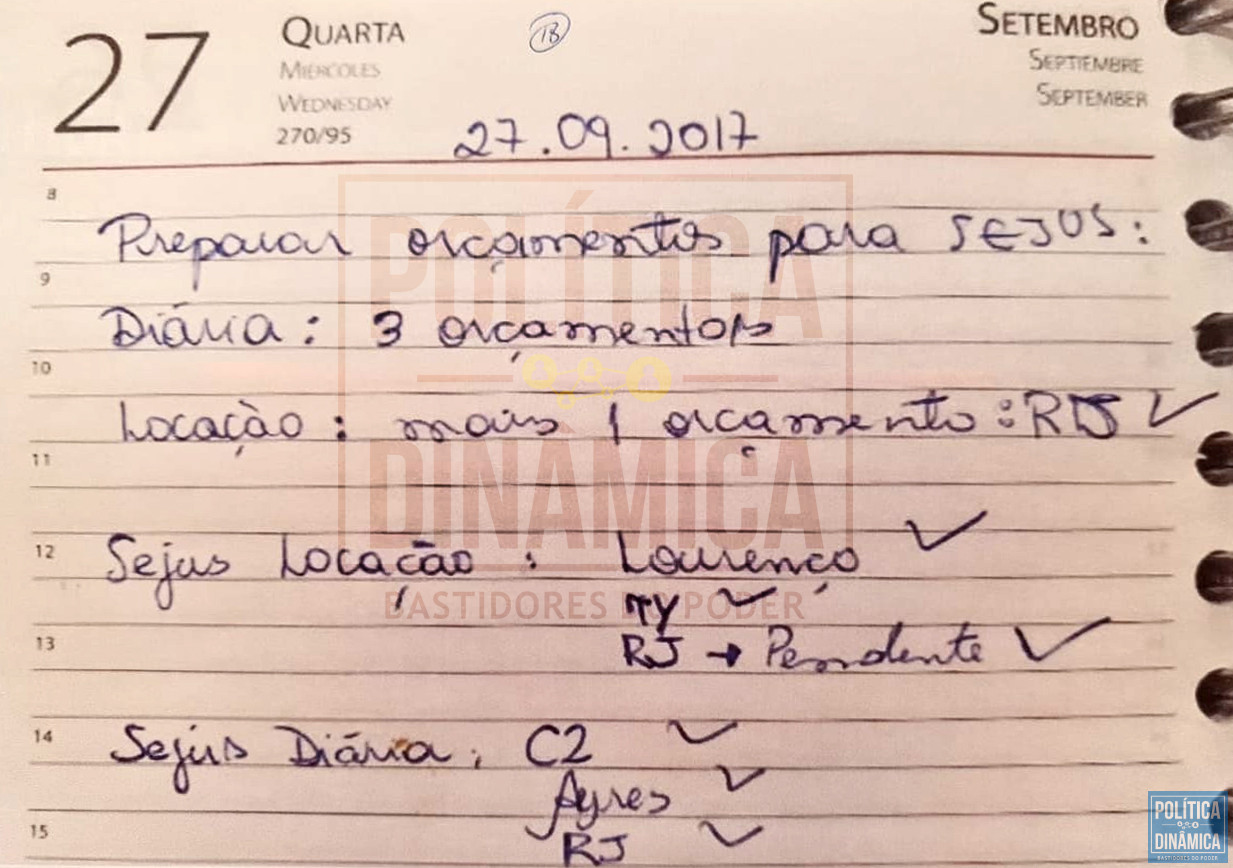 27 QUARTA TB SETEMBRO
MIÉRCOLES SEPTIEMBRE
WEDNESDAY SEPTEMBER
270/95 27.09.2017
8
Preparar orçamentos para SEJUS:
9
Diária: 3 orçamentos
10
Locação: mais 1 orçamento: RJ ✓
11
12 Sejus Locação: Lourenço ✓
TY ✓
13 RJ → Pendente ✓
14 Sejus Diária: C2 ✓
Ayres ✓
15 RJ ✓
POLÍTICA
DINÂMICA
BASTIDORES DO PODER
POLÍTICA
DINÂMICA
BASTIDORES DO PODER